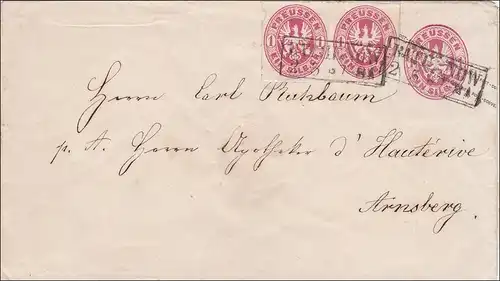 PREUSSEN PREUSSEN PREUSSEN
1 1
EIN SILB.GR. EIN SILB.GR.
Herrn Carl Ruhbaum
p. A. Herrn Apotheker d' Hautérive
Arnsberg.